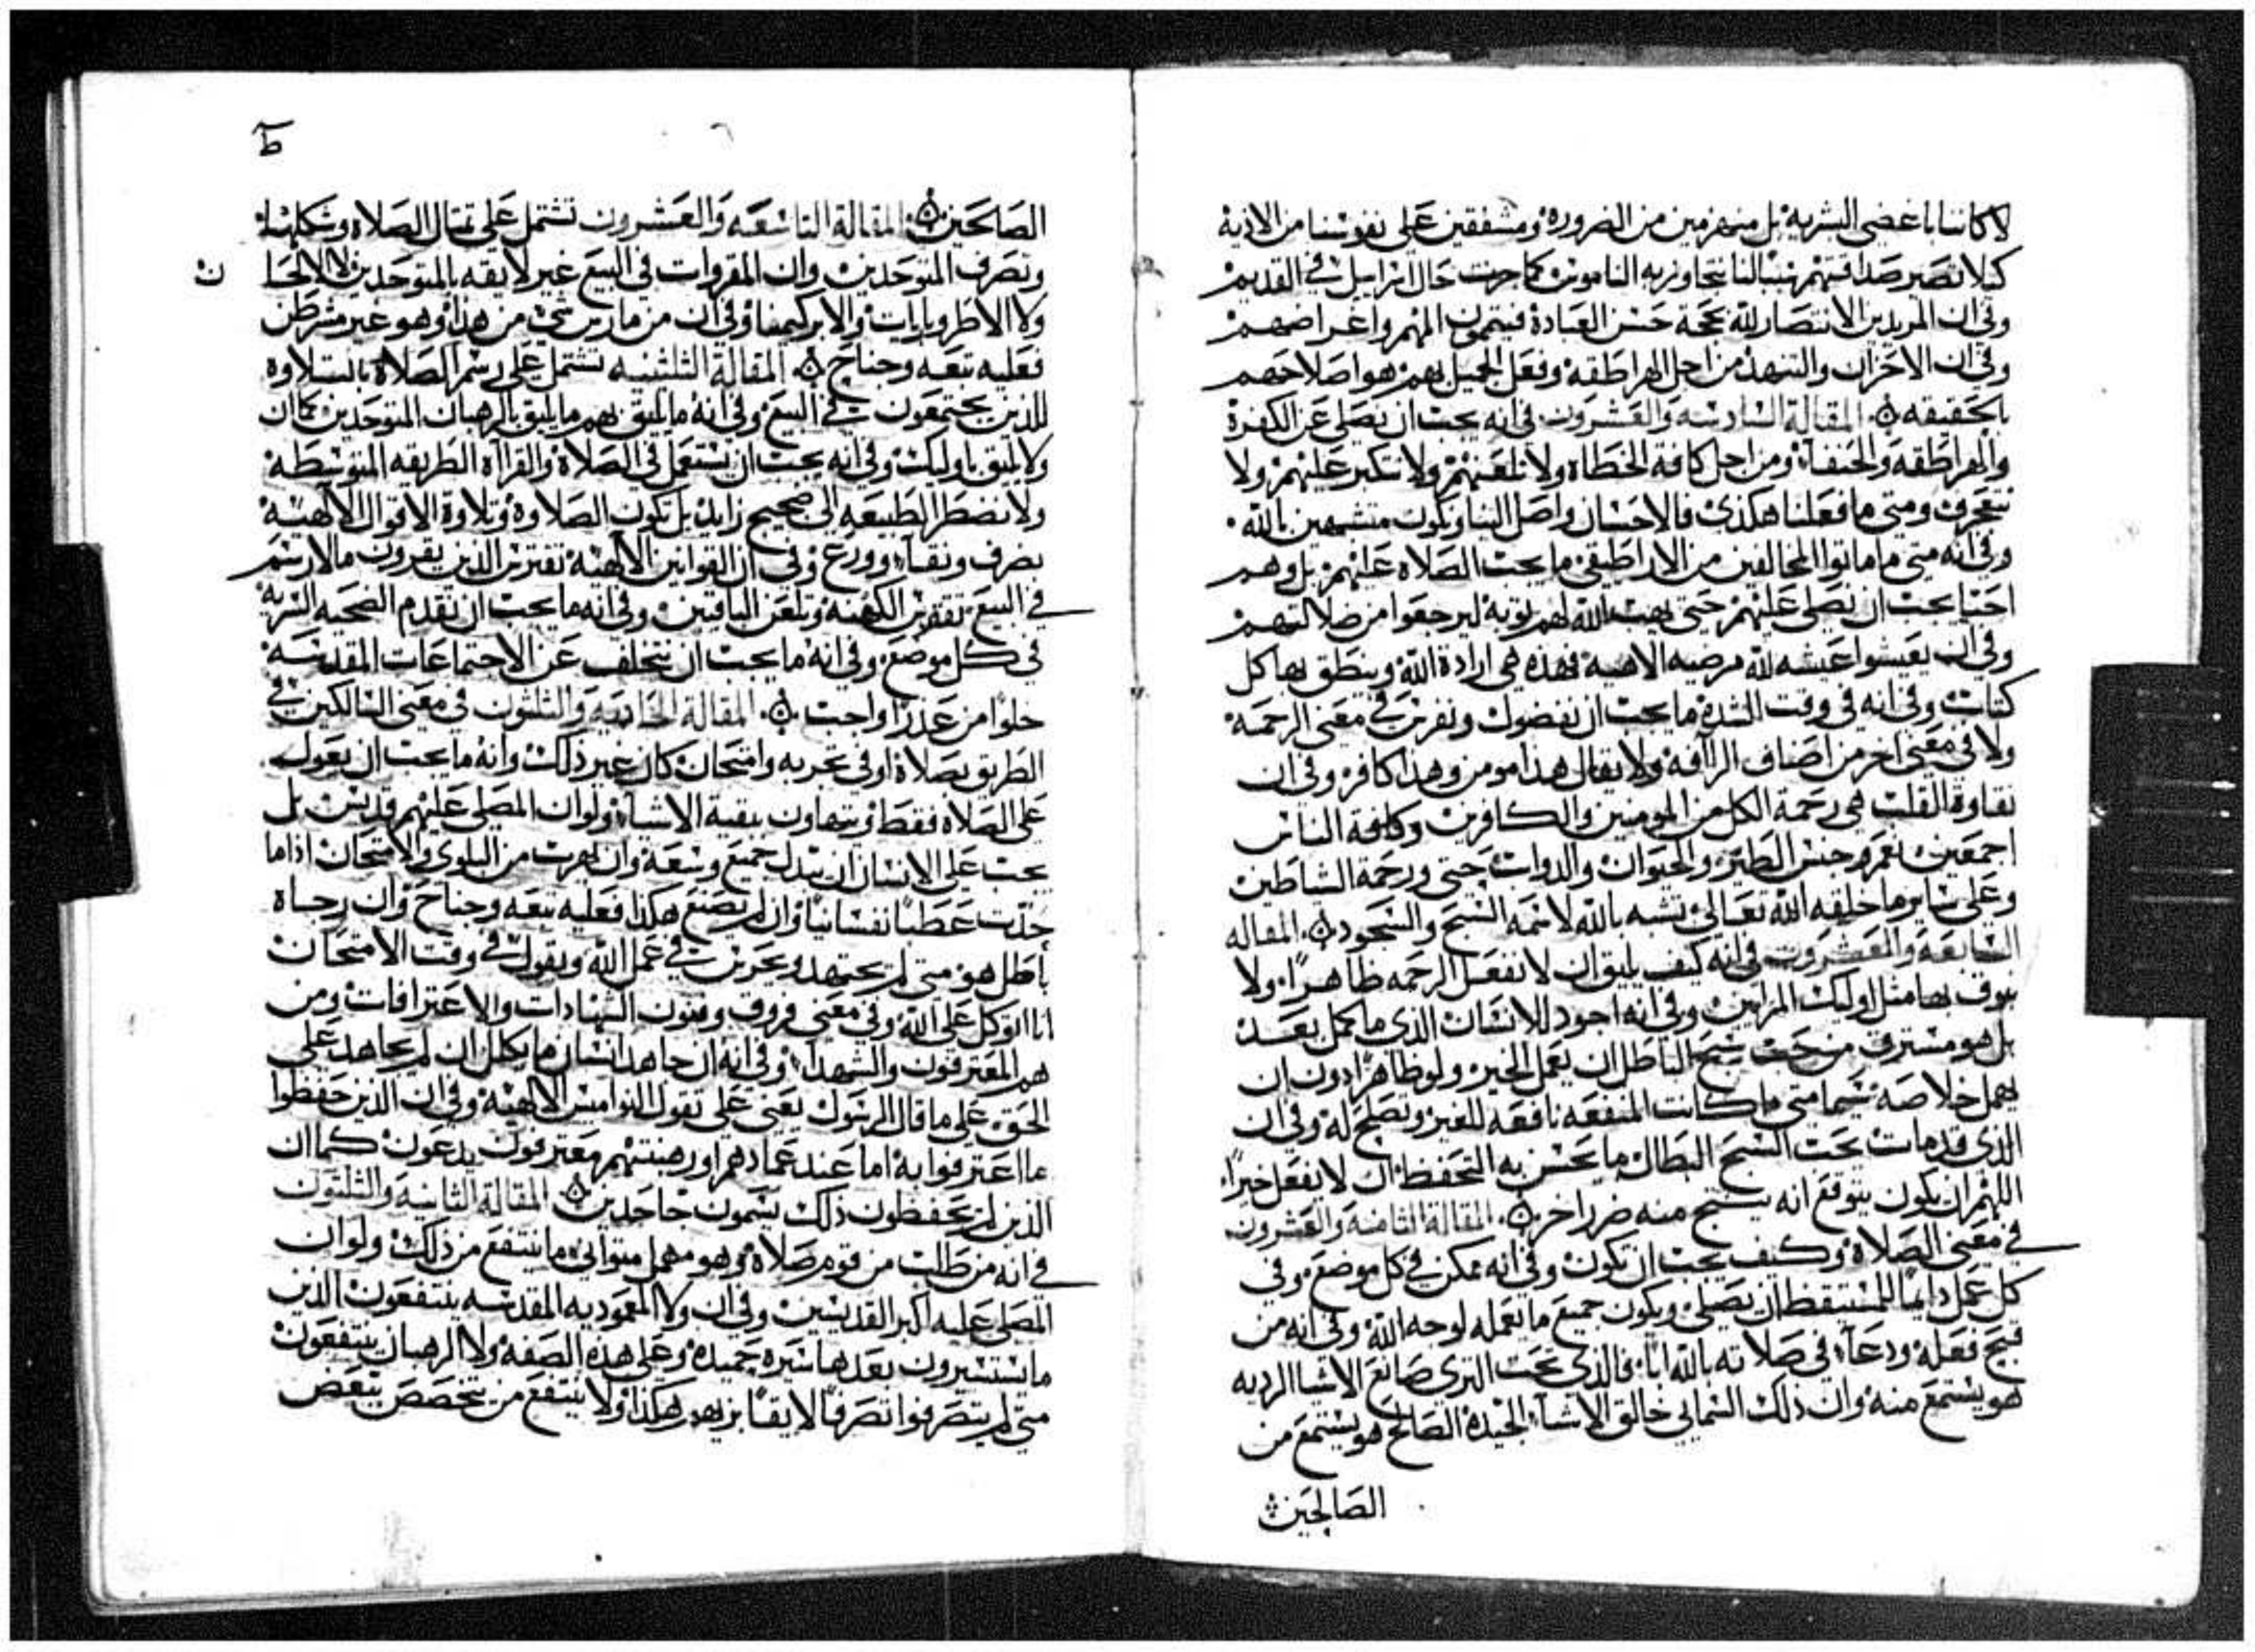 لاكاننا باغضي البشريه بل منهزمين من الضروره ومشفقين على نفوسنا من الاذيه
كيلا تصير صداقتهم سببا لنا نتجاوز به الناموس كما جرت حال اسراييل في القديم
وفي ان المريدين الانتصار لله بحجة حسن العبادة فيتممون المهم واغراضهم
وفي ان الاحزان والتنهد من اجل الهراطقه وفعل الجميل بهم هو اصلاحهم
بالحقيقه ۞ المقالة السادسه والعشرون في انه يجب ان نصلي عن الكفرة
والهراطقه والحنفاء ومن اجل كافة الخطاه ولا نلعنهم ولا نتكبر عليهم ولا
نتعجرف ومتى ما فعلنا هكذى فالاحسان واصل الينا ونكون متشبهين بالله
وفي انه متى ما ماتوا المخالفين من الاراطيقي ما يجب الصلاه عليهم بل وهم
احيا يجب ان نصلي عليهم حتى يهب الله لهم توبه ليرجعوا من ضلالتهم
وفي ان يعيشوا عيشه لله مرضيه الاهيه فهذه هي ارادة الله وينطق بها كل
كتاب وفي انه في وقت الشدة ما يجب ان نفضول ونفرز في معنى الرحمة
ولا في معنى اخر من اصناف الراافه ولا يقال هذا مومن وهذا كافر وفي ان
نقاوة القلب هي رحمة الكل من المومنين والكافرين وكافة الناس
اجمعين نعم وجنس الطير والحيوان والدواب حتى ورحمة الشاطين
وعلى ساير ما خلقه الله تعالى تشبه بالله لاسمه السبح والسجود ۞ المقاله
السابعة والعشرون في انه كيف يليق ان لا نفعل الرحمه ظاهرا ولا
نبوق بها مثل اوليك المرايين وفي انه اجود للانسان الذي ما كمل بعد
بل هو مسترق من تحت سبح الباطل ان يعمل الخير ولو ظاهرا دون ان
يهمل خلاصه سيما متى ما كانت المنفعه نافعه للغير وتصلح له وفي ان
الذي قد مات تحت السبح البطال ما يحسن به التحفظ ان لا يفعل خيرا
اللهم ان يكون يتوقع انه يستتج منه ضرر اخر ۞ المقالة الثامنه والعشرون
في معنى الصلاة وكيف يجب ان تكون وفي انه ممكن في كل موضع وفي
كل عمل دايما للمستيقظ ان يصلي ويكون جميع ما يعمله لوجه الله وفي انه من
قبح فعله ودعاء في صلاته بالله ابا فالذي تحت الثرى صانع الاشيا الرديه
هو يستمع منه وان ذلك السمايي خالق الاشياء الجيدة الصالح هو يستمع من
الصالحين
ط
الصالحين ۞ المقالة التاسعه والعشرون تشتمل على تمثال الصلاه وشكلها
وتصرف المتوحدين وان المقروات في البيع غير لايقه بالمتوحدين لا الالحا
ن
ولا الاطروباريات والابركيمنا وفي ان من مارس شي من هذا وهو غير مشرطن
فعليه تبعه وجناح ۞ المقالة الثلثينيه تشتمل على رسم الصلاة بالتلاوه
للذين يجتمعون في البيع وفي انه ما يليق بهم ما يليق بالرهبان المتوحدين كما ان
ولا يليق باوليك وفي انه يجب ان نستعمل في الصلاة والقرااه الطريقه المتوسطه
ولا نضطر الطبيعه الى ضجيج زايد بل تكون الصلاوة وتلاوة الاقوال الالهيه
بصرف ونقاء وورع وفي ان القوانين الالهيه تفترس الذين يقرون ما لا رسم
في البيع تقفرس الكهنه وتلعن الباقيين وفي انه ما يجب ان نقدم الضحيه السريه
في كل موضع وفي انه ما يجب ان نتخلف عن الاجتماعات المقدسه
خلوا من عذر او واجب ۞ المقالة الحاديه والثلثون في معنى السالكين في
الطريق بصلاة او في تجربه وامتحان كان غير ذلك وانه ما يجب ان يعول
على الصلاه فقط ويتهاون ببقية الاشياء ولو ان المصلي عليهم قديس بل
يجب على الانسان ان يبدل جميع وسعه وان يهرب من البلوى والامتحان اذا ما
جلبت عطبا نفسانيا وان لم يصنع هكذا فعليه تبعه وجناح وان رجاه
باطل هو متى لم يجتهد ويحرص في عمل الله ويقول في وقت الامتحان
انا اتوكل على الله وفي معنى فروق وفنون الشهادات والاعترافات ومن
هم المعترفون والشهداء وفي انه ان جاهد انسان ما يكلل ان لم يجاهد على
الحق على ما قال الرسول يعني على تقول النواميس الالهيه وفي ان الذين حفظوا
ما اعترفوا به اما عند عمادهم او رهبنتهم معترفون يدعون كما ان
الذين لم يحفظون ذلك يسمون جاحدين ۞ المقالة الثانيه والثلثون
في انه من طلب من قوم صلاة وهو مهمل متواني ما ينتفع من ذلك ولو ان
المصلي عليه اكبر القديسين وفي ان ولا المعموديه المقدسه ينتفعون الذين
ما يستسيرون بعدها سيره حميدة وعلى هذه الصفه ولا الرهبان ينتفعون
متى لم يتصرفوا تصرفا لايقا بزيهم هكذا ولا ينتفع من يتخصص ببعض